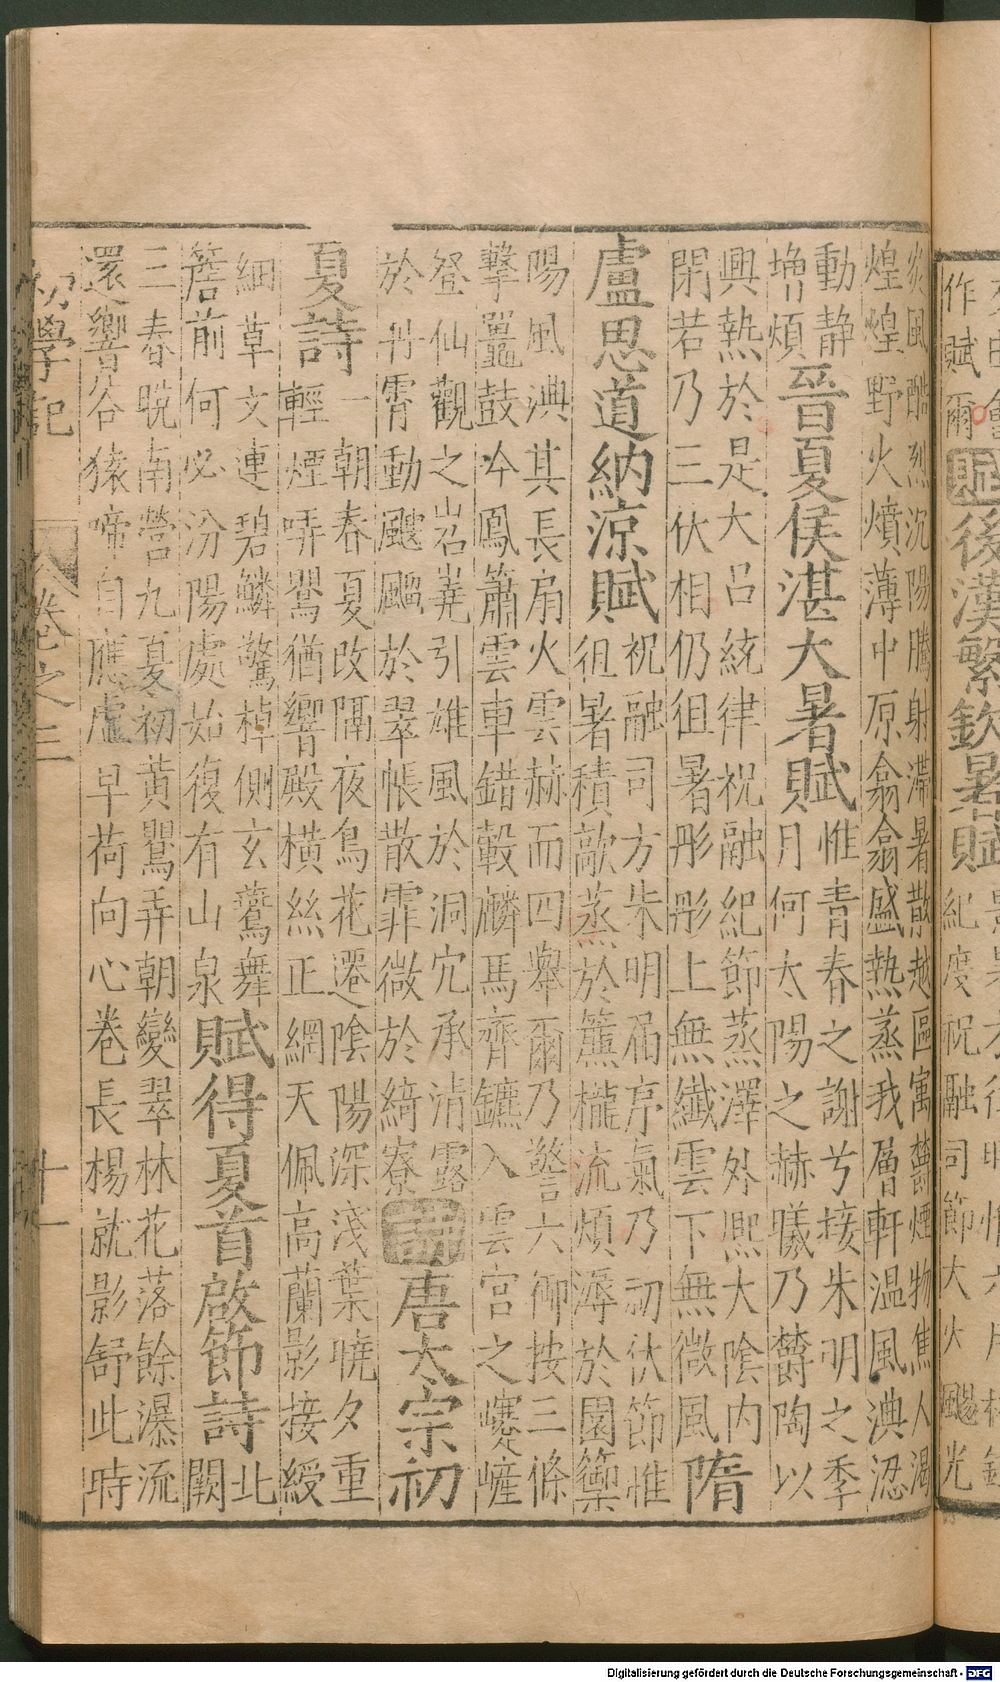 作賦爾 賦 後漢繁欽暑賦
紀度祝融司節大火颺光
炎風酷烈沉陽騰射滯暑散越區寓鬱煙物焦人渴
煌煌野火燌薄中原翕翕盛熱蒸我層軒温風淟涊
動静
増煩
晉夏侯湛大暑賦
惟青春之謝兮接朱明之季
月何太陽之赫曦乃鬱陶以
興熱於是大呂統律祝融紀節蒸澤外熈大陰内
閉若乃三伏相仍徂暑彤彤上無纖雲下無微風
隋
盧思道納涼賦
祝融司方朱明届序氣乃初伏節惟
徂暑積歊蒸於簾櫳流煩溽於園籞
陽風淟其長扇火雲赫而四舉爾乃警六御按三條
擊鼉鼓吟鳳簫雲車錯轂麟馬齊鑣入雲宫之嶻嵼
登仙觀之岧嶤引雄風於洞穴承清露
於丹霄動飃飈於翠帳散霏微於綺寮
詩
唐太宗初
夏詩
一朝春夏改隔夜鳥花遷陰陽深淺葉曉夕重
輕煙哢鸎猶響殿横絲正網天佩高蘭影接綬
細草文連碧鱗驚棹側玄鷰舞
簷前何必汾陽處始復有山泉
賦得夏首啟節詩
北
闕
三春晚南營九夏初黄鸎弄朝變翠林花落餘瀑流
還響谷猿啼自應虛早荷向心卷長楊就影舒此時
初學記
卷之三
十一
Digitalisierung gefördert durch die Deutsche Forschungsgemeinschaft - DFG